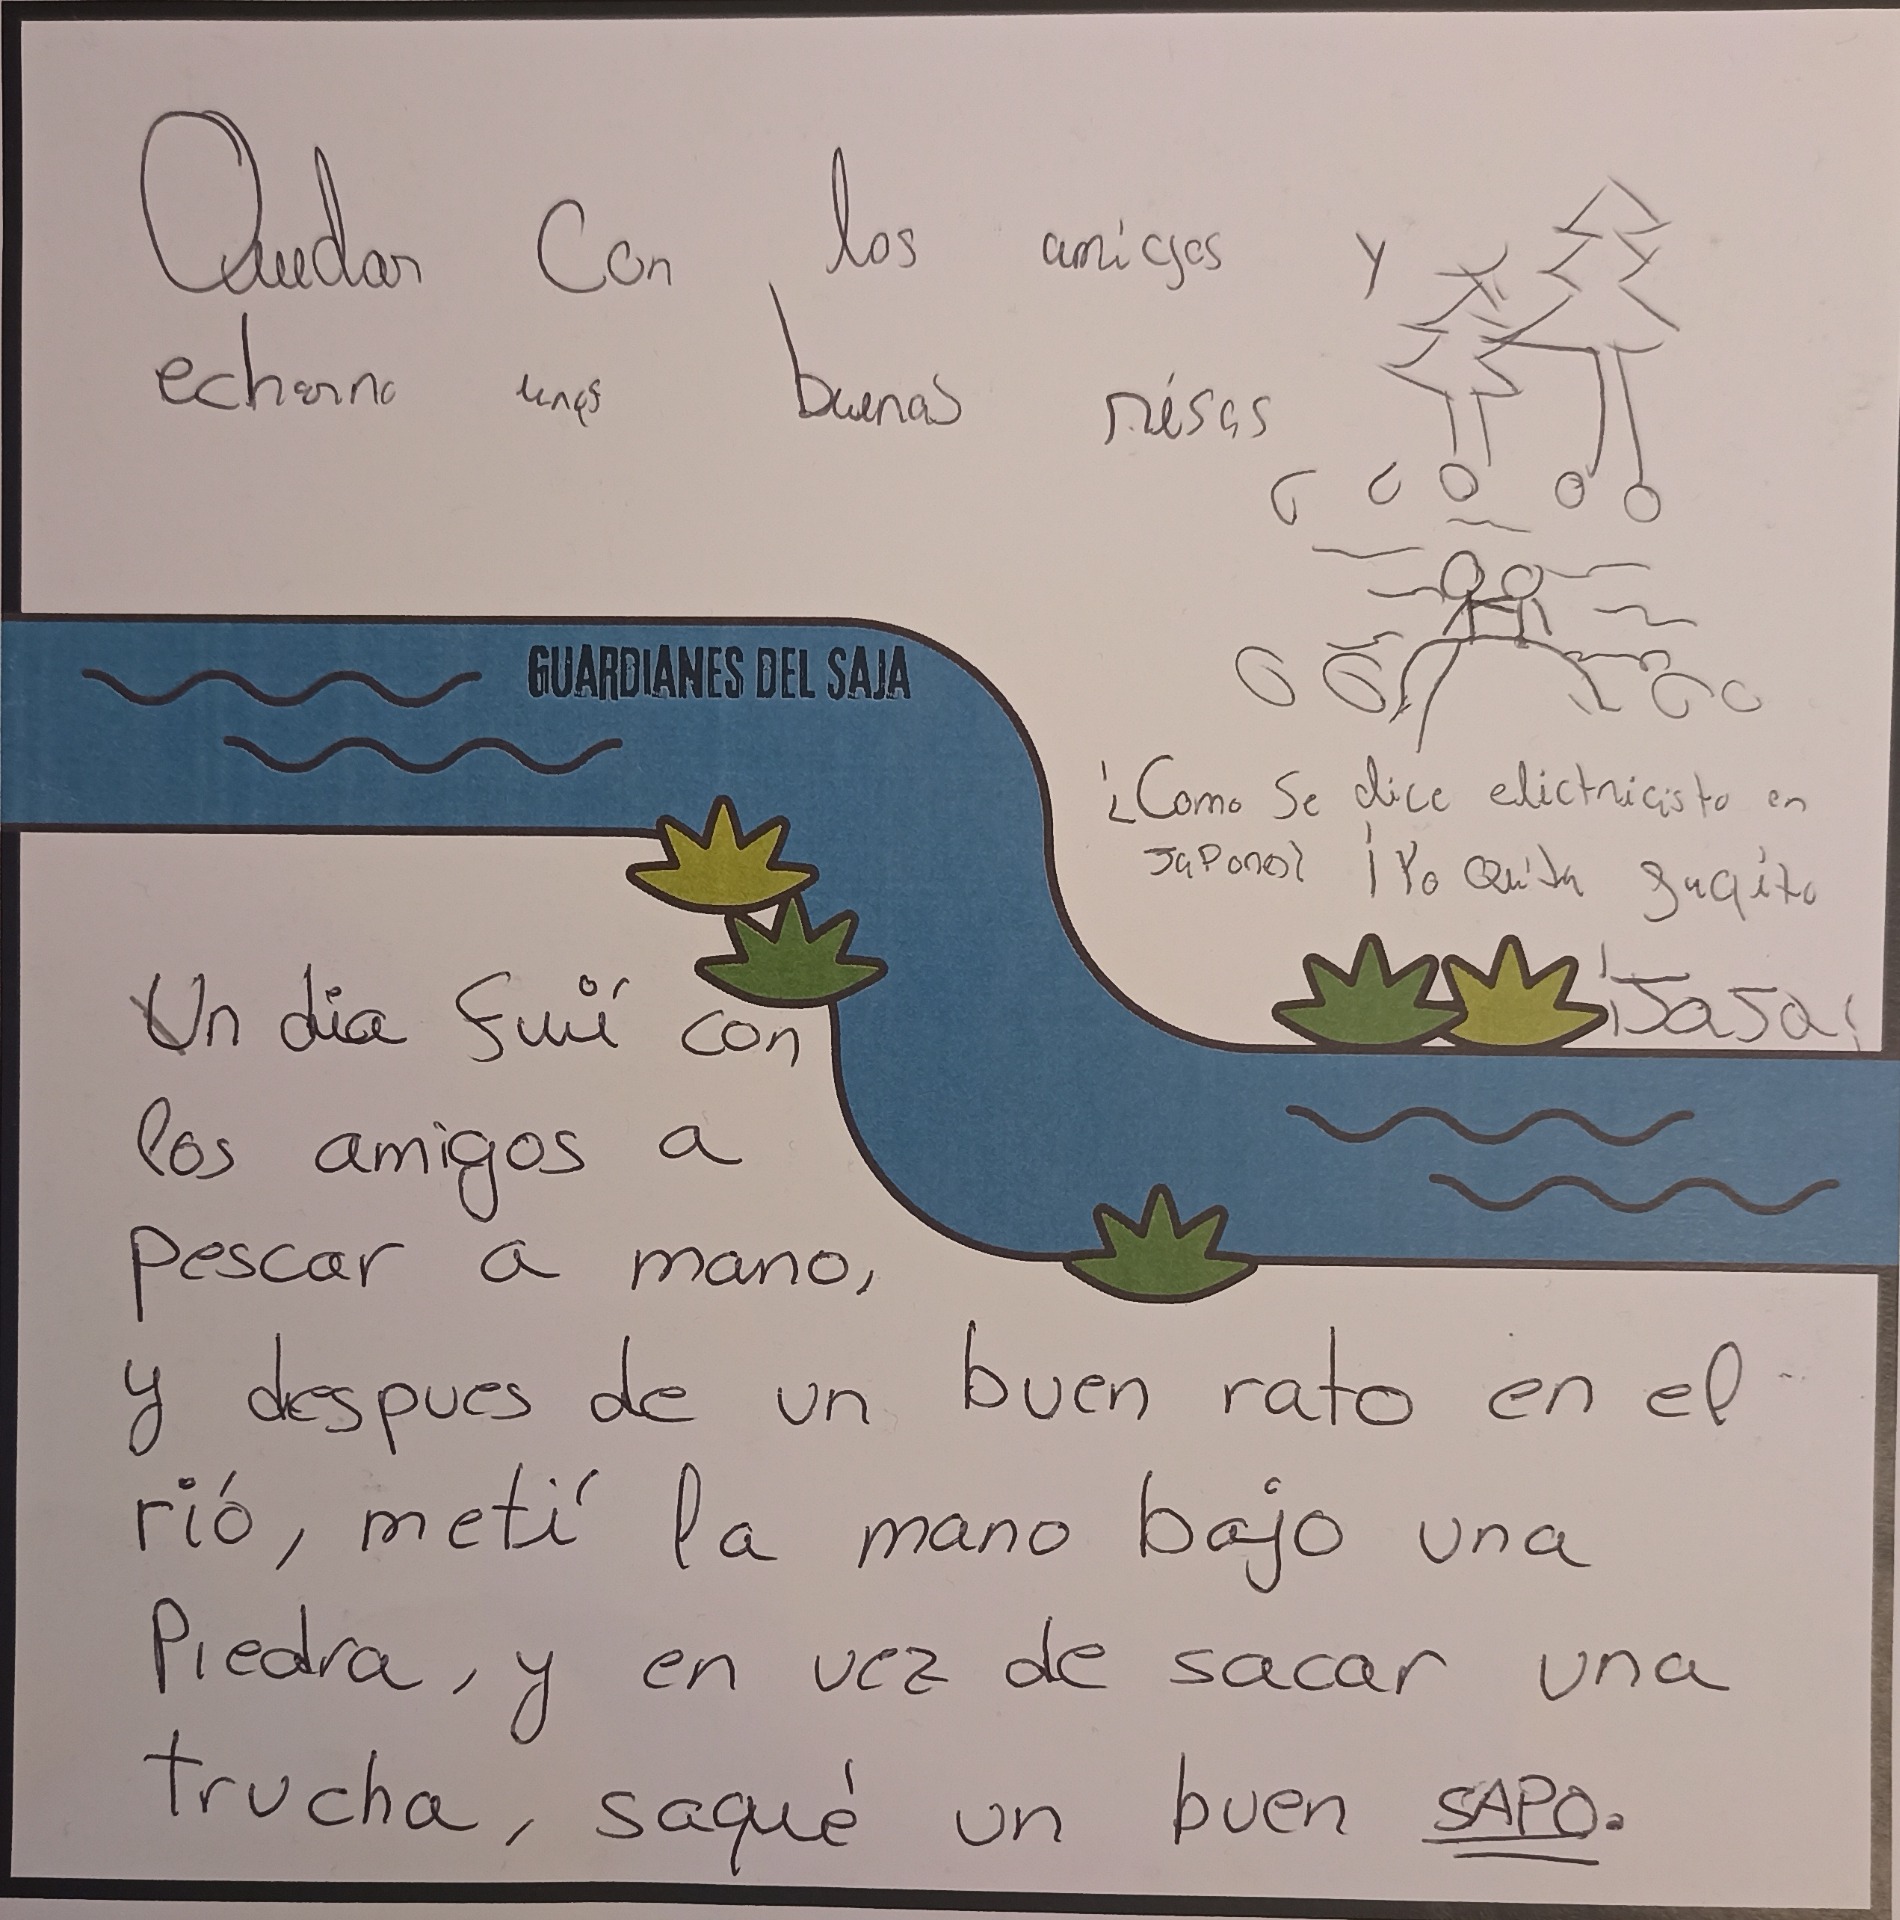 Quedar Con los amigos y
echarno unas buenas risas
GUARDIANES DEL SAJA
¿Como Se dice elictricista en
Japones? ¡Yo Quita guqito
¡JaJa!
Un dia fuií con
los amigos a
pescar a mano,
y despues de un buen rato en el
rió, metí la mano bajo una
Piedra, y en vez de sacar una
trucha, saqué un buen SAPO.